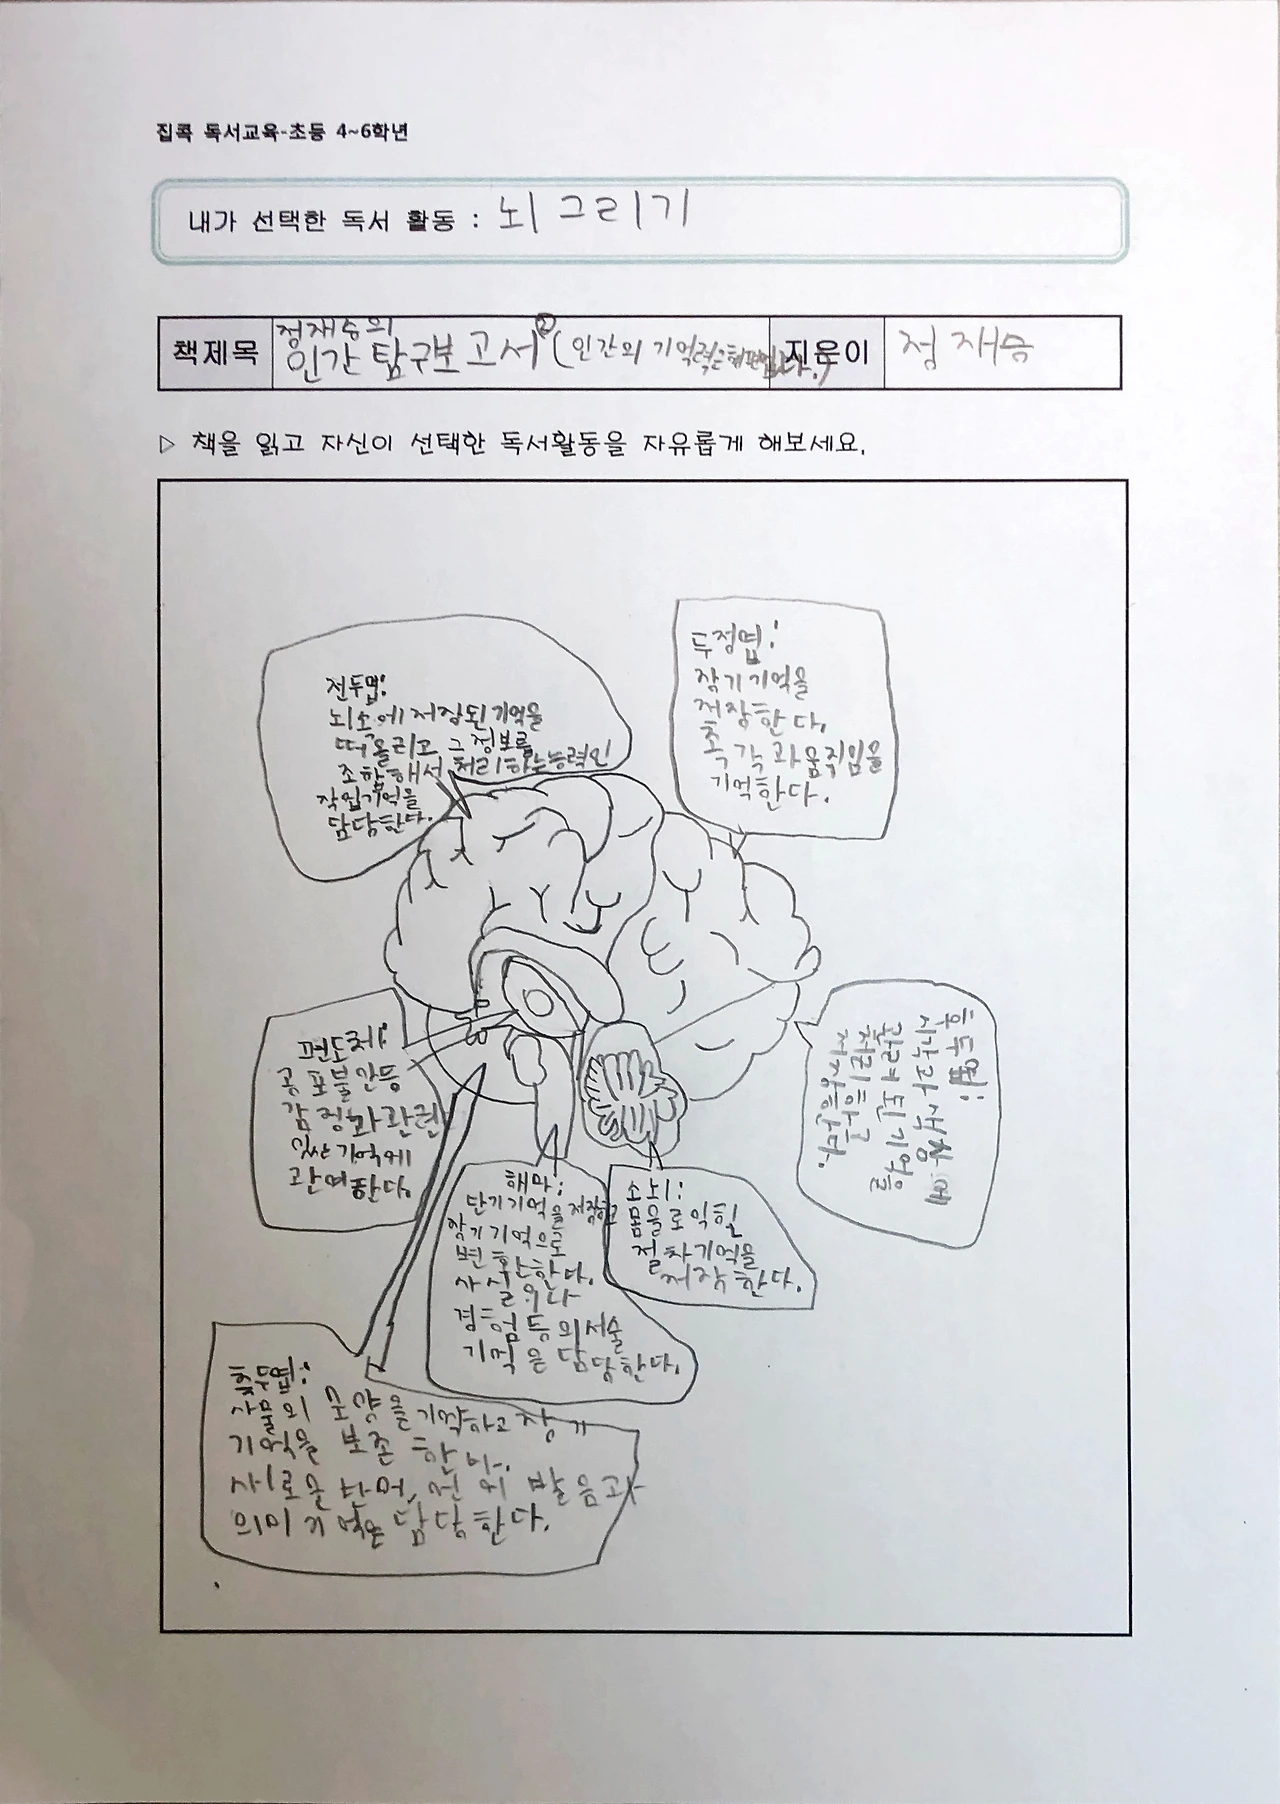 집콕 독서교육-초등 4~6학년
내가 선택한 독서 활동 : 뇌 그리기
책제목
정재승의
인간 탐구보고서 2 (인간의 기억력은 형편없다.)
지은이
정재승
▷ 책을 읽고 자신이 선택한 독서활동을 자유롭게 해보세요.
전두엽:
뇌속에 저장된 기억을
떠올리고 그 정보를
조합해서 처리하는능력인
작업기억을
담당한다.
두정엽:
장기기억을
저장한다.
촉각과 움직임을
기억한다.
편도체:
공포불안등
감정과관련
있는 기억에
관여한다.
후두엽:
시각과
관련된 기억을
해마:
단기기억을 저장하고
장기기억으로
변환한다.
사실이나
경험등의 서술
기억을 담당한다.
소뇌:
몸을로 익힌
절차기억을
저장한다.
측두엽:
사물의 모양을 기억하고 장기
기억을 보존한다.
발음과
의미기억을 담당한다.